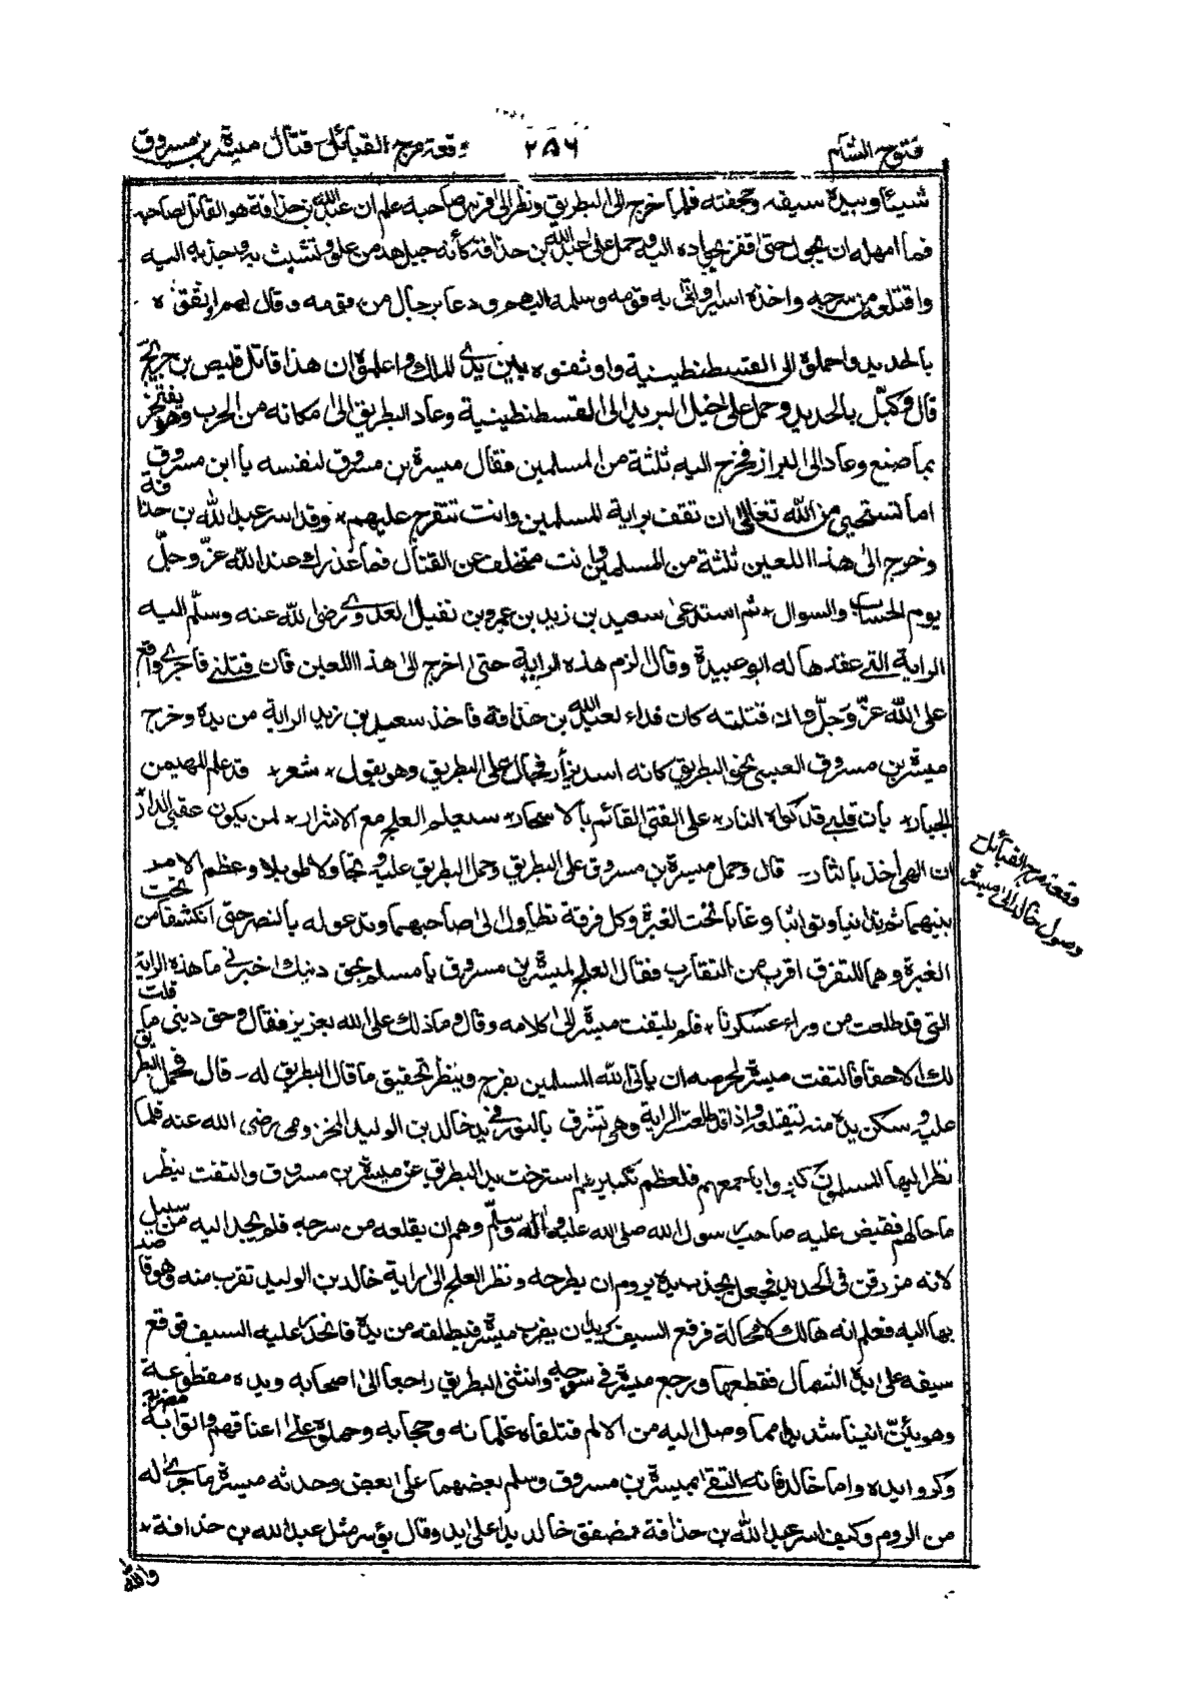 فتوح الشام ٢٥٦ وقعة مرج القبائل - قتال ميسرة بن مسروق
شيئا وبيده سيفه وحجفته فلما خرج الى البطريق ونظر الى فريس صاحبه علم ان عبد الله بن حذافة هو القاتل لصاحبه
فما امهله ان يجول حتى اقفز بجواده اليه وحمل على عبد الله بن حذافة كأنه جبل هد من علو وتشبث به وجذبه اليه
واقتلعه من سرجه واخذه اسيرا واتى به قومه وسلمه اليهم ودعا برجال من قومه وقال لهم اوثقوه
بالحديد واحملوه الى القسطنطينية واوثقوه بين يدي الملك واعلموه ان هذا قاتل فليص بن جريج
قال وكبّل بالحديد وحمل على خيل البريد الى القسطنطينية وعاد البطريق الى مكانه من الحرب وهو يفتخر
بما صنع وعاد الى البراز فخرج اليه ثلثة من المسلمين فقال ميسرة بن مسروق لنفسه يا ابن مسروق
اما تستحيي من الله تعالى ان تقف براية المسلمين وانت تتفرج عليهم * وقد اسر عبد الله بن حذافة
وخرج الى هذا اللعين ثلثة من المسلمين وانت متخلف عن القتال فما عذرك عند الله عزّ وجلّ
يوم الحساب والسوال * ثم استدعى سعيد بن زيد بن عمرو بن نفيل العدوي رضى لله عنه وسلّم اليه
الراية التي عقدها له ابو عبيدة وقال الزم هذه الراية حتى اخرج الى هذا اللعين فان قتلني فاجري واقع
على الله عزّ وَجلّ وان قتلته كان فداء لعبد الله بن حذافة فاخذ سعيد بن زيد الراية من يده وخرج
ميسرة بن مسروق العبسي نحو البطريق كانه اسد يزأر فحمل على البطريق وهو يقول * شعر * قد علم المهيمن
الجبار * بان قلبي قد كواه النار * على الفتى القائم بالاسحار * سيعلم العلج مع الاشرار * لمن يكون عقبى الدار
ان الهى أخذ بالثار - قال وحمل ميسرة بن مسروق على البطريق وحمل البطريق عليه وتجاولا طويلا وعظم الامر
بينهما ثم تدانيا وتواثبا وغابا تحت الغبرة وكل فرقة تطاول الى صاحبهما وتدعو له بالنصر حتى انكشفا من تحت
الغبرة وهما للتفرق اقرب من التقارب فقال العلج لميسرة بن مسروق يا مسلم بحق دينك اخبرني ما هذه الراية
التى قد طلعت من وراء عسكرنا * فلم يلتفت ميسرة الى كلامه وقال وما ذلك على الله بعزيز فقال وحق ديني ما قلت
لك الا حقا فالتفت ميسرة لحرصه ان يأتى الله المسلمين بفرج وينظر تحقيق ما قال البطريق له - قال فحمل البطريق
عليه وسكن يده منه ليقتلعه واذا قد طلعت الراية وهى تشرق بالنور في يد خالد بن الوليد المخزومى رضى الله عنه فلما
نظر اليها المسلمون كبروا باجمعهم فلعظم تكبيرهم استرخت يد البطريق عن ميسرة بن مسروق والتفت ينظر
ما حالهم فقبض عليه صاحب رسول الله صلى الله عليه وآله وسلّم وهم ان يقلعه من سرجه فلم يجد اليه من سبيل
لانه مزرفن فى الحديد فجعل يجذب بيده يروم ان يطرحه ونظر العلج الى راية خالد بن الوليد تقرب منه وهو قاصد
بها اليه فعلم انه هالك لا محالة فرفع السيف يريد ان يضرب ميسرة فيطلقه من يده فانحدر عليه السيف فوقع
سيفه على يده الشمال فقطعها ورجع ميسرة في سرجه وانثنى البطريق راجعا الى اصحابه ويده مقطوعة
وهو يئنّ انينا شديدا مما وصل اليه من الالم فتلقاه غلمانه وحجابه وحملوه على اعناقهم واتوا به مضربه
وكووا يده واما خالد فانه التقى بميسرة بن مسروق وسلم بعضهما على بعض وحدثه ميسرة ما جرى له
من الروم وكيف اسر عبد الله بن حذافة فصفق خالد يدا على يد وقال يؤسر مثل عبد الله بن حذافة *
والله
وقعة مرج القبائل
وصول خالد الى ميسرة